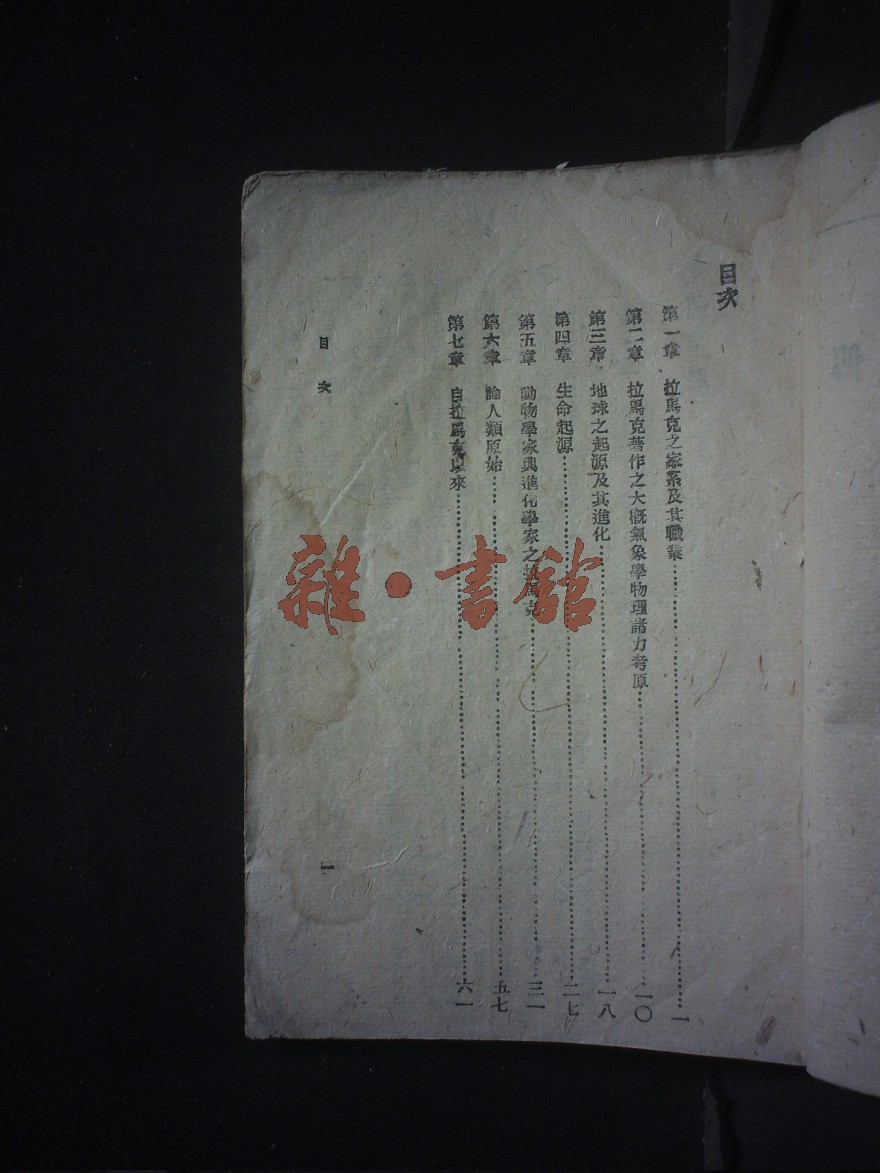 目次
第一章 拉馬克之家系及其職業…………一
第二章 拉馬克著作之大概氣象學物理諸力考原…………一〇
第三章 地球之起源及其進化…………一八
第四章 生命起源…………二七
第五章 動物學家典進化學家之拉馬克…………三一
第六章 論人類原始…………五七
第七章 自拉馬克以來…………六一
目次 一
雜·書館